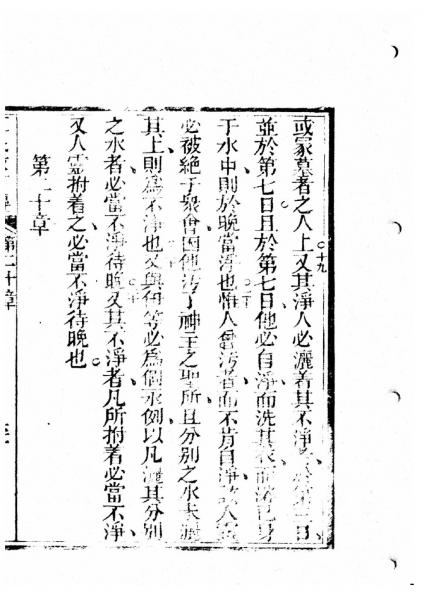 或冢墓者之人上又其淨人必灑着其不淨者於第三日
十九
並於第七日且於第七日他必自淨而洗其衣而浴已身
于水中則於晚當淨也惟人為污者而不肯自淨該人
必被絕于衆會因他污了神王之聖所且分別之水未灑
其上則為不淨也又與伊等必為個永例以凡灑其分別
之水者必當不淨待晚又其不淨者凡所拊着必當不淨
又人靈拊着之必當不淨待晚也
第二十章
第二十章